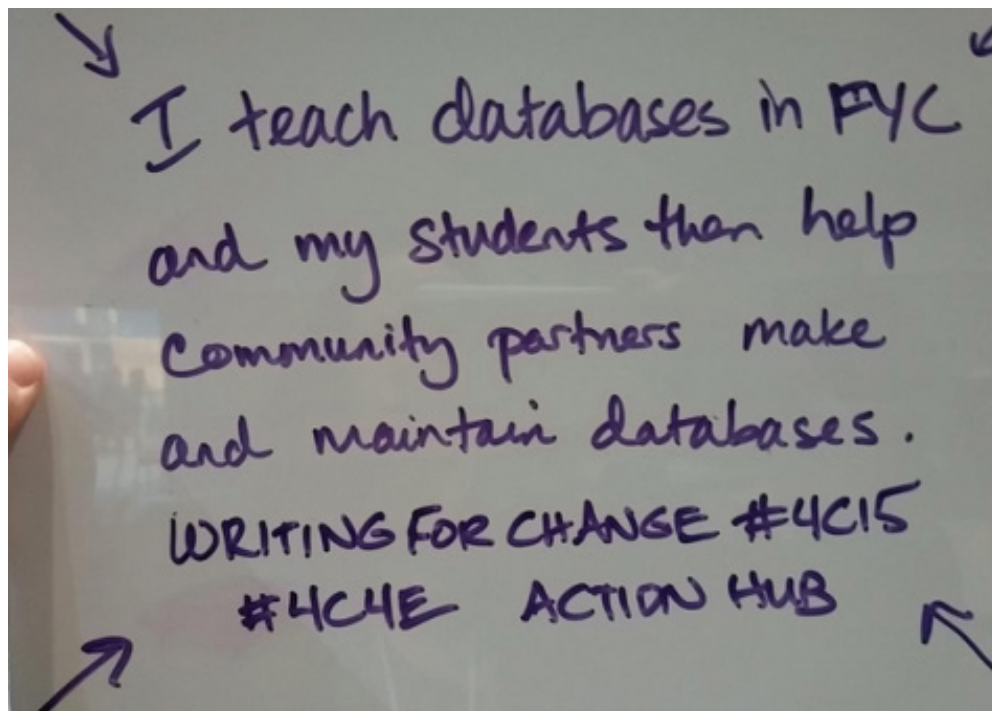 I teach databases in FYC
and my students then help
community partners make
and maintain databases.
WRITING FOR CHANGE #4C15
#4C4E ACTION HUB